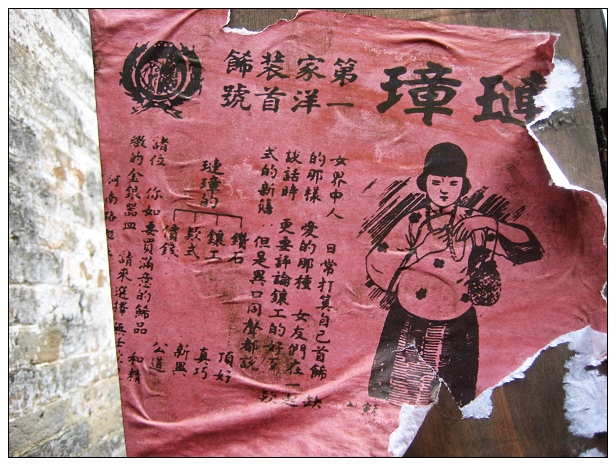 璉璋
第一家洋裝首飾號
女界中人 日常打算自己首飾 缺
的那樣 愛的那種 女友們在一起
談話時 更要評論鑲工的好歹 款
式的新舊‥但是異口同聲都說
璉璋的
鑽石 頂好
鑲工 真巧
款式 新興
價錢 公道
諸位 你如要買滿意的飾品 和精
緻的金銀器皿 請來選擇無
河南路